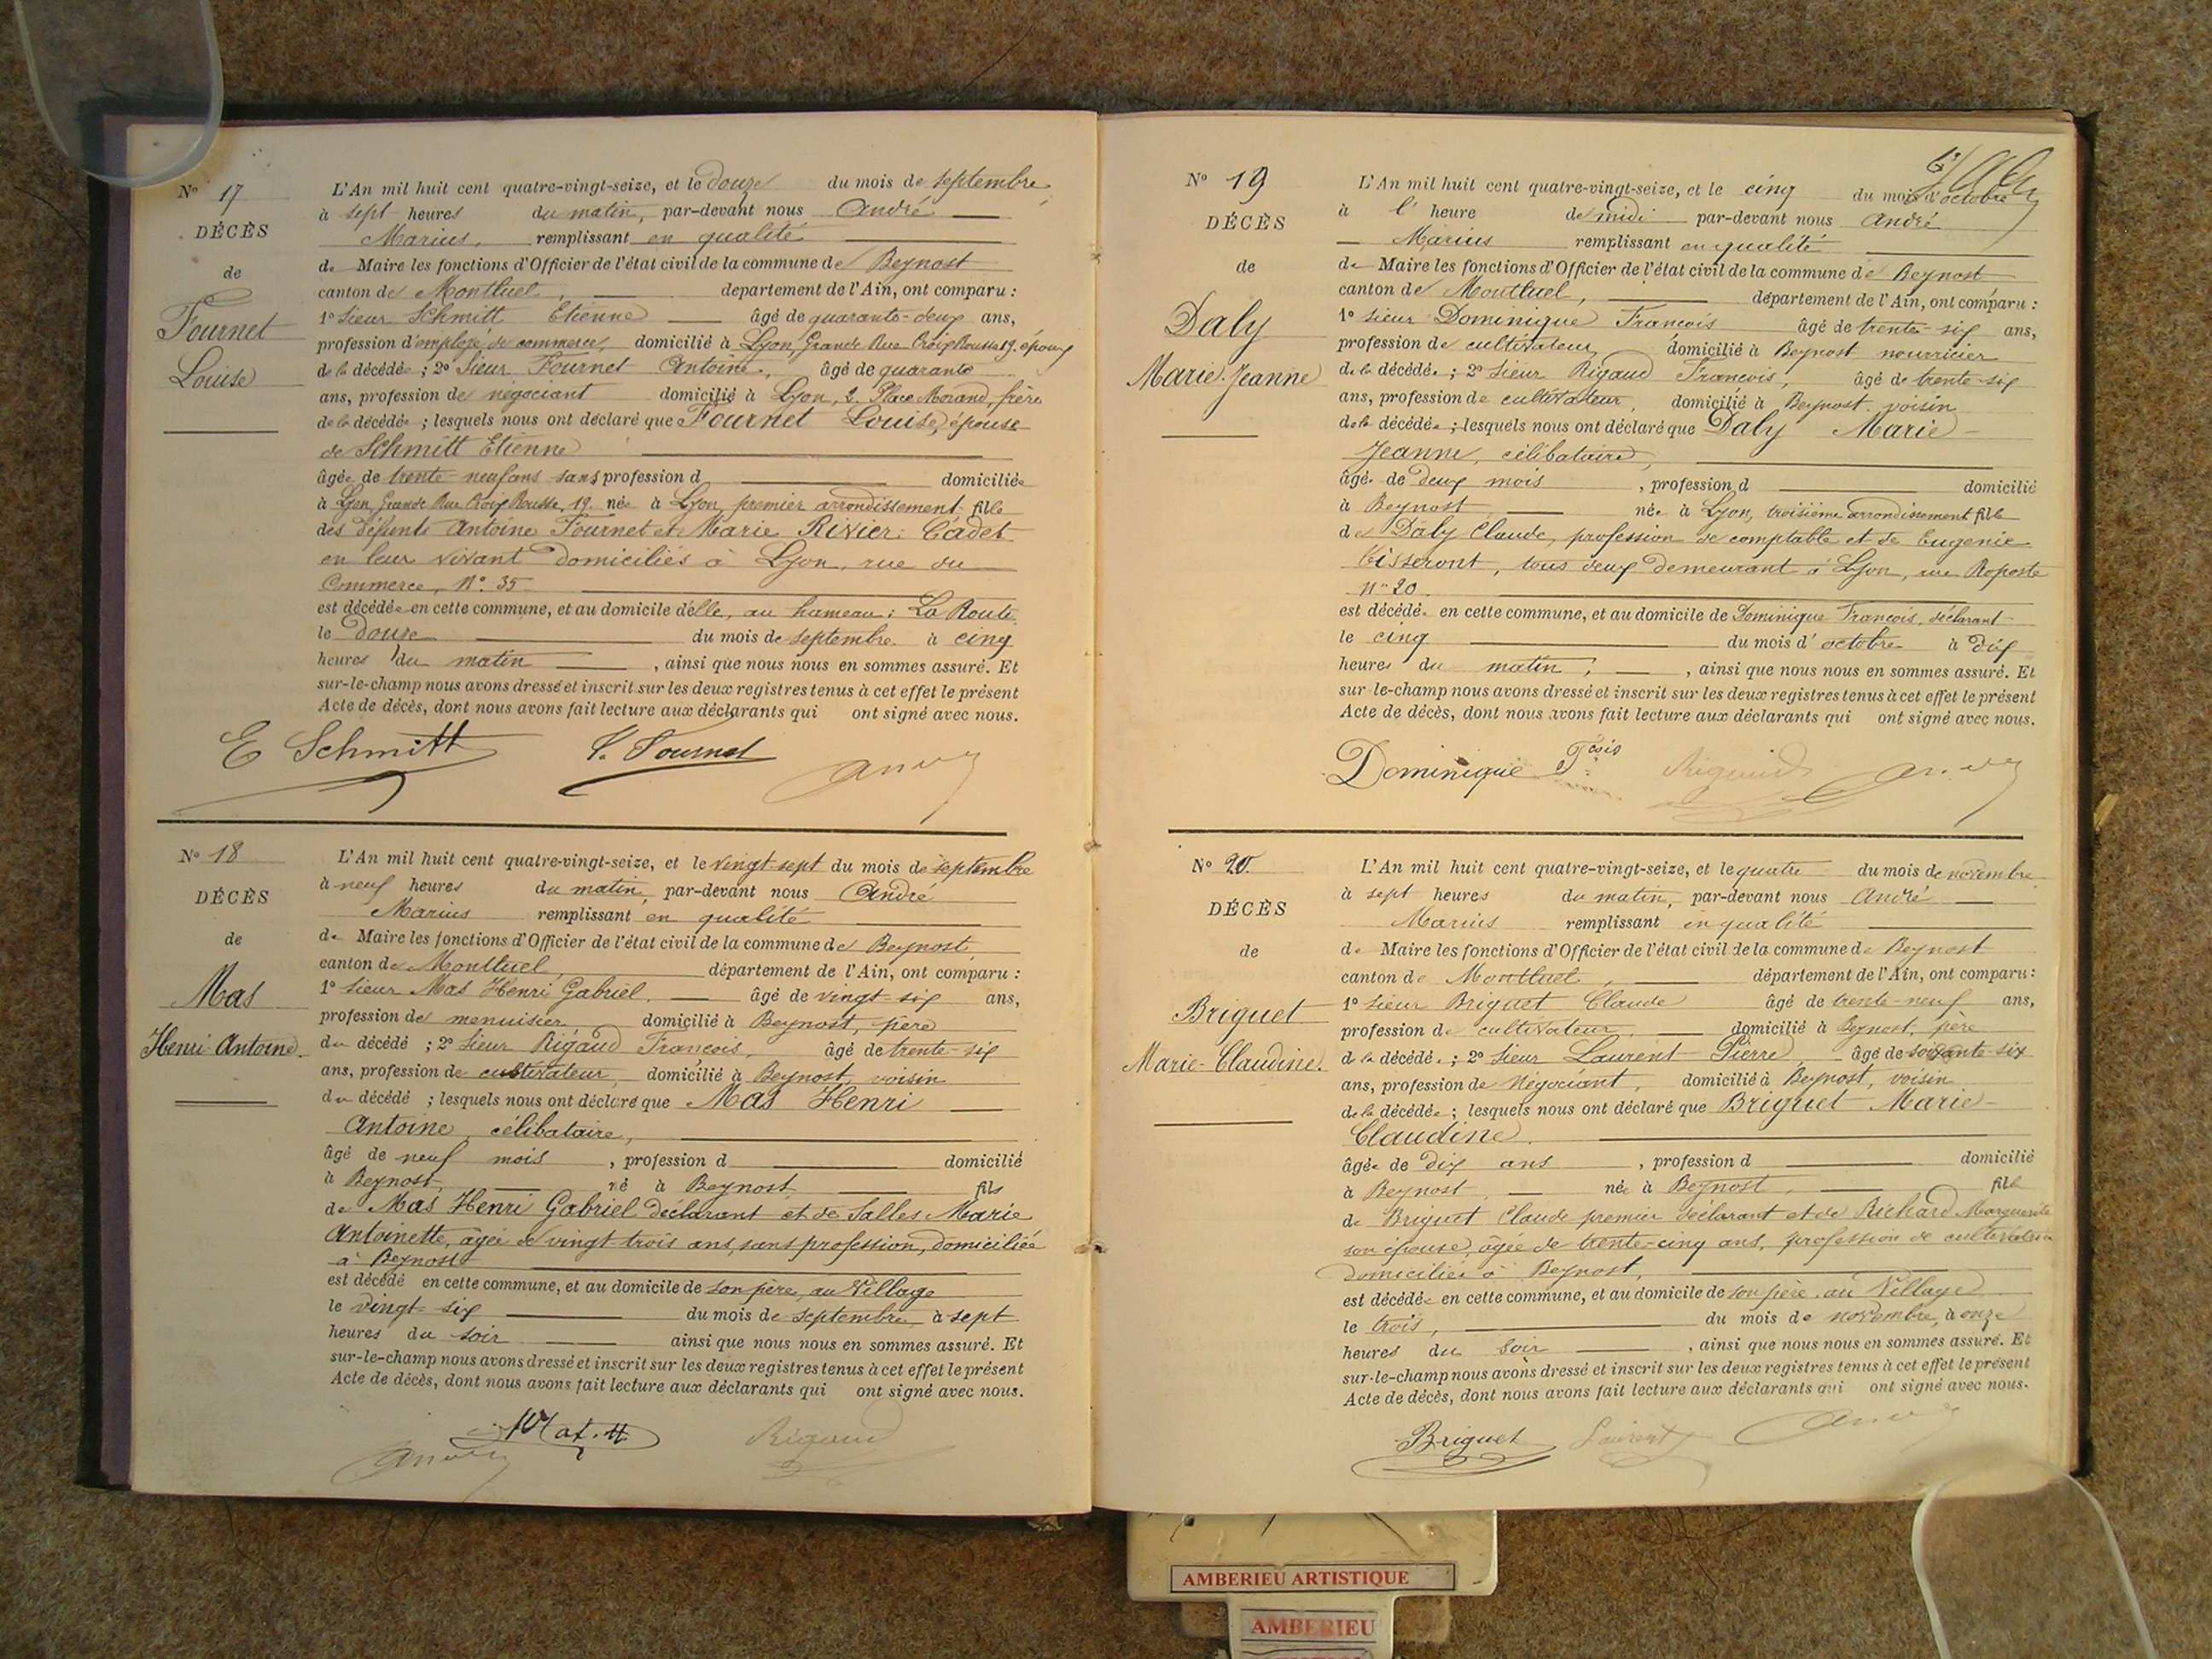 N° 17
DÉCÈS
de
Fournet
Louise
L'An mil huit cent quatre-vingt-seize, et le douze du mois de septembre
à sept heures du matin, par-devant nous André
Marius, remplissant en qualité
de Maire les fonctions d'Officier de l'état civil de la commune de Beynost
canton de Montluel, département de l'Ain, ont comparu :
1° Sieur Schmitt Etienne âgé de quarante-deux ans,
profession d'employé de commerce, domicilié à Lyon, Grande Rue Croix Rousse 19. époux
de la décédée ; 2° Sieur Fournet Antoine, âgé de quarante
ans, profession de négociant domicilié à Lyon, 2. Place Morand, frère
de la décédée ; lesquels nous ont déclaré que Fournet Louise, épouse
de Schmitt Etienne
âgée de trente-neuf ans sans profession d domiciliée
à Lyon, Grande Rue Croix Rousse, 19. née à Lyon, premier arrondissement, fille
des défunts Antoine Fournet et Marie Rivier Cadet
en leur vivant domiciliés à Lyon, rue du
Commerce, N°. 35
est décédée en cette commune, et au domicile d'elle, au hameau : La Route
le douze du mois de septembre à cinq
heures du matin, ainsi que nous nous en sommes assuré. Et
sur-le-champ nous avons dressé et inscrit sur les deux registres tenus à cet effet le présent
Acte de décès, dont nous avons fait lecture aux déclarants qui ont signé avec nous.
E Schmitt Fournet
N° 18
DÉCÈS
de
Mas
Henri Antoine.
L'An mil huit cent quatre-vingt-seize, et le vingt-sept du mois de septembre
à neuf heures du matin, par-devant nous André
Marius remplissant en qualité
de Maire les fonctions d'Officier de l'état civil de la commune de Beynost,
canton de Montluel, département de l'Ain, ont comparu :
1° Sieur Mas Henri Gabriel. âgé de vingt-six ans,
profession de menuisier domicilié à Beynost, père
du décédé ; 2° Sieur Rigaud François, âgé de trente-six
ans, profession de cultivateur, domicilié à Beynost, voisin
du décédé ; lesquels nous ont déclaré que Mas Henri
Antoine, célibataire,
âgé de neuf mois, profession d domicilié
à Beynost, né à Beynost fils
de Mas Henri Gabriel déclarant et de Salles Marie
Antoinette, agée de vingt-trois ans sans profession, domiciliée
à Beynost
est décédé en cette commune, et au domicile de son père, au Village
le vingt-six du mois de septembre à sept
heures du soir ainsi que nous nous en sommes assuré. Et
sur-le-champ nous avons dressé et inscrit sur les deux registres tenus à cet effet le présent
Acte de décès, dont nous avons fait lecture aux déclarants qui ont signé avec nous.
Rigaud
N° 19
DÉCÈS
de
Daly
Marie-Jeanne
L'An mil huit cent quatre-vingt-seize, et le cinq du mois d'octobre
à l' heure de midi par-devant nous André
Marius remplissant en qualité
de Maire les fonctions d'Officier de l'état civil de la commune de Beynost
canton de Montluel, département de l'Ain, ont comparu :
1° Sieur Dominique François âgé de trente-six ans,
profession de cultivateur, domicilié à Beynost nourricier
de la décédée ; 2° Sieur Rigaud François, âgé de trente-six
ans, profession de cultivateur, domicilié à Beynost. voisin
de la décédée ; lesquels nous ont déclaré que Daly Marie-
Jeanne, célibataire,
âgée de deux mois, profession d domicilié
à Beynost, née à Lyon, troisième arrondissement fille
de Daly Claude, profession de comptable et de Eugenie
Tisseront, tous deux demeurant à Lyon, rue Roposte
n° 20.
est décédée en cette commune, et au domicile de Dominique François, déclarant
le cinq du mois d'octobre à dix
heures du matin, ainsi que nous nous en sommes assuré. Et
sur-le-champ nous avons dressé et inscrit sur les deux registres tenus à cet effet le présent
Acte de décès, dont nous avons fait lecture aux déclarants qui ont signé avec nous.
Dominique Fçois Rigaud
N° 20.
DÉCÈS
de
Briguet
Marie-Claudine.
L'An mil huit cent quatre-vingt-seize, et le quatre du mois de novembre
à sept heures du matin, par-devant nous André
Marius remplissant en qualité
de Maire les fonctions d'Officier de l'état civil de la commune de Beynost
canton de Montluel, département de l'Ain, ont comparu :
1° Sieur Briguet Claude âgé de trente-neuf ans,
profession de cultivateur. domicilié à Beynost, père
de la décédée ; 2° Sieur Laurent Pierre, âgé de soixante six
ans, profession de Négociant, domicilié à Beynost, voisin
de la décédée ; lesquels nous ont déclaré que Briguet Marie-
Claudine.
âgée de dix ans, profession d domicilié
à Beynost, née à Beynost, fille
de Briguet Claude premier déclarant et de Richard Marguerite
son épouse, âgée de trente-cinq ans, profession de cultivatrice
domiciliée à Beynost,
est décédée en cette commune, et au domicile de son père, au Village
le trois, du mois de novembre, à onze
heures du soir, ainsi que nous nous en sommes assuré. Et
sur-le-champ nous avons dressé et inscrit sur les deux registres tenus à cet effet le présent
Acte de décès, dont nous avons fait lecture aux déclarants qui ont signé avec nous.
Briguet Laurent
AMBERIEU ARTISTIQUE
AMBERIEU